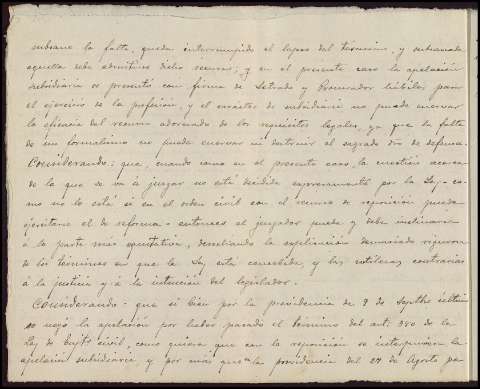 subsane la falta, queda interrumpido el lapso del término, y subsanada
aquella debe admitirse dicho recurso; y en el presente caso la apelación
subsidiaria se presentó con firma de Letrado y Procurador hábiles para
el ejercicio de la profesión, y el carácter de subsidiaria no puede enervar
la eficacia del recurso adornado de los requisitos legales, ya que la falta
de un formalismo no puede enervar ni destruir el sagrado dro de defensa.
Considerando: que, cuando como en el presente caso, la cuestión acerca
de la que se va á juzgar no está decidida expresamente por la Ley – co-
mo no lo está si en el orden civil con el recurso de reposición puede
ejercitarse el de reforma – entonces el juzgador puede y debe inclinarse
á la parte más equitativa, desechando la explicación demasiado rigurosa
de los términos en que la Ley está concebida, y las sutilezas contrarias
á la justicia y á la intención del legislador.
Considerando: que si bien por la providencia de 9 de Septbre último
se negó la apelación por haber pasado el término del art. 380 de la
Ley de Enjto civil, como quiera que con la reposición se interpusiera la
apelación subsidiaria y por más que la providencia del 27 de Agosto pa